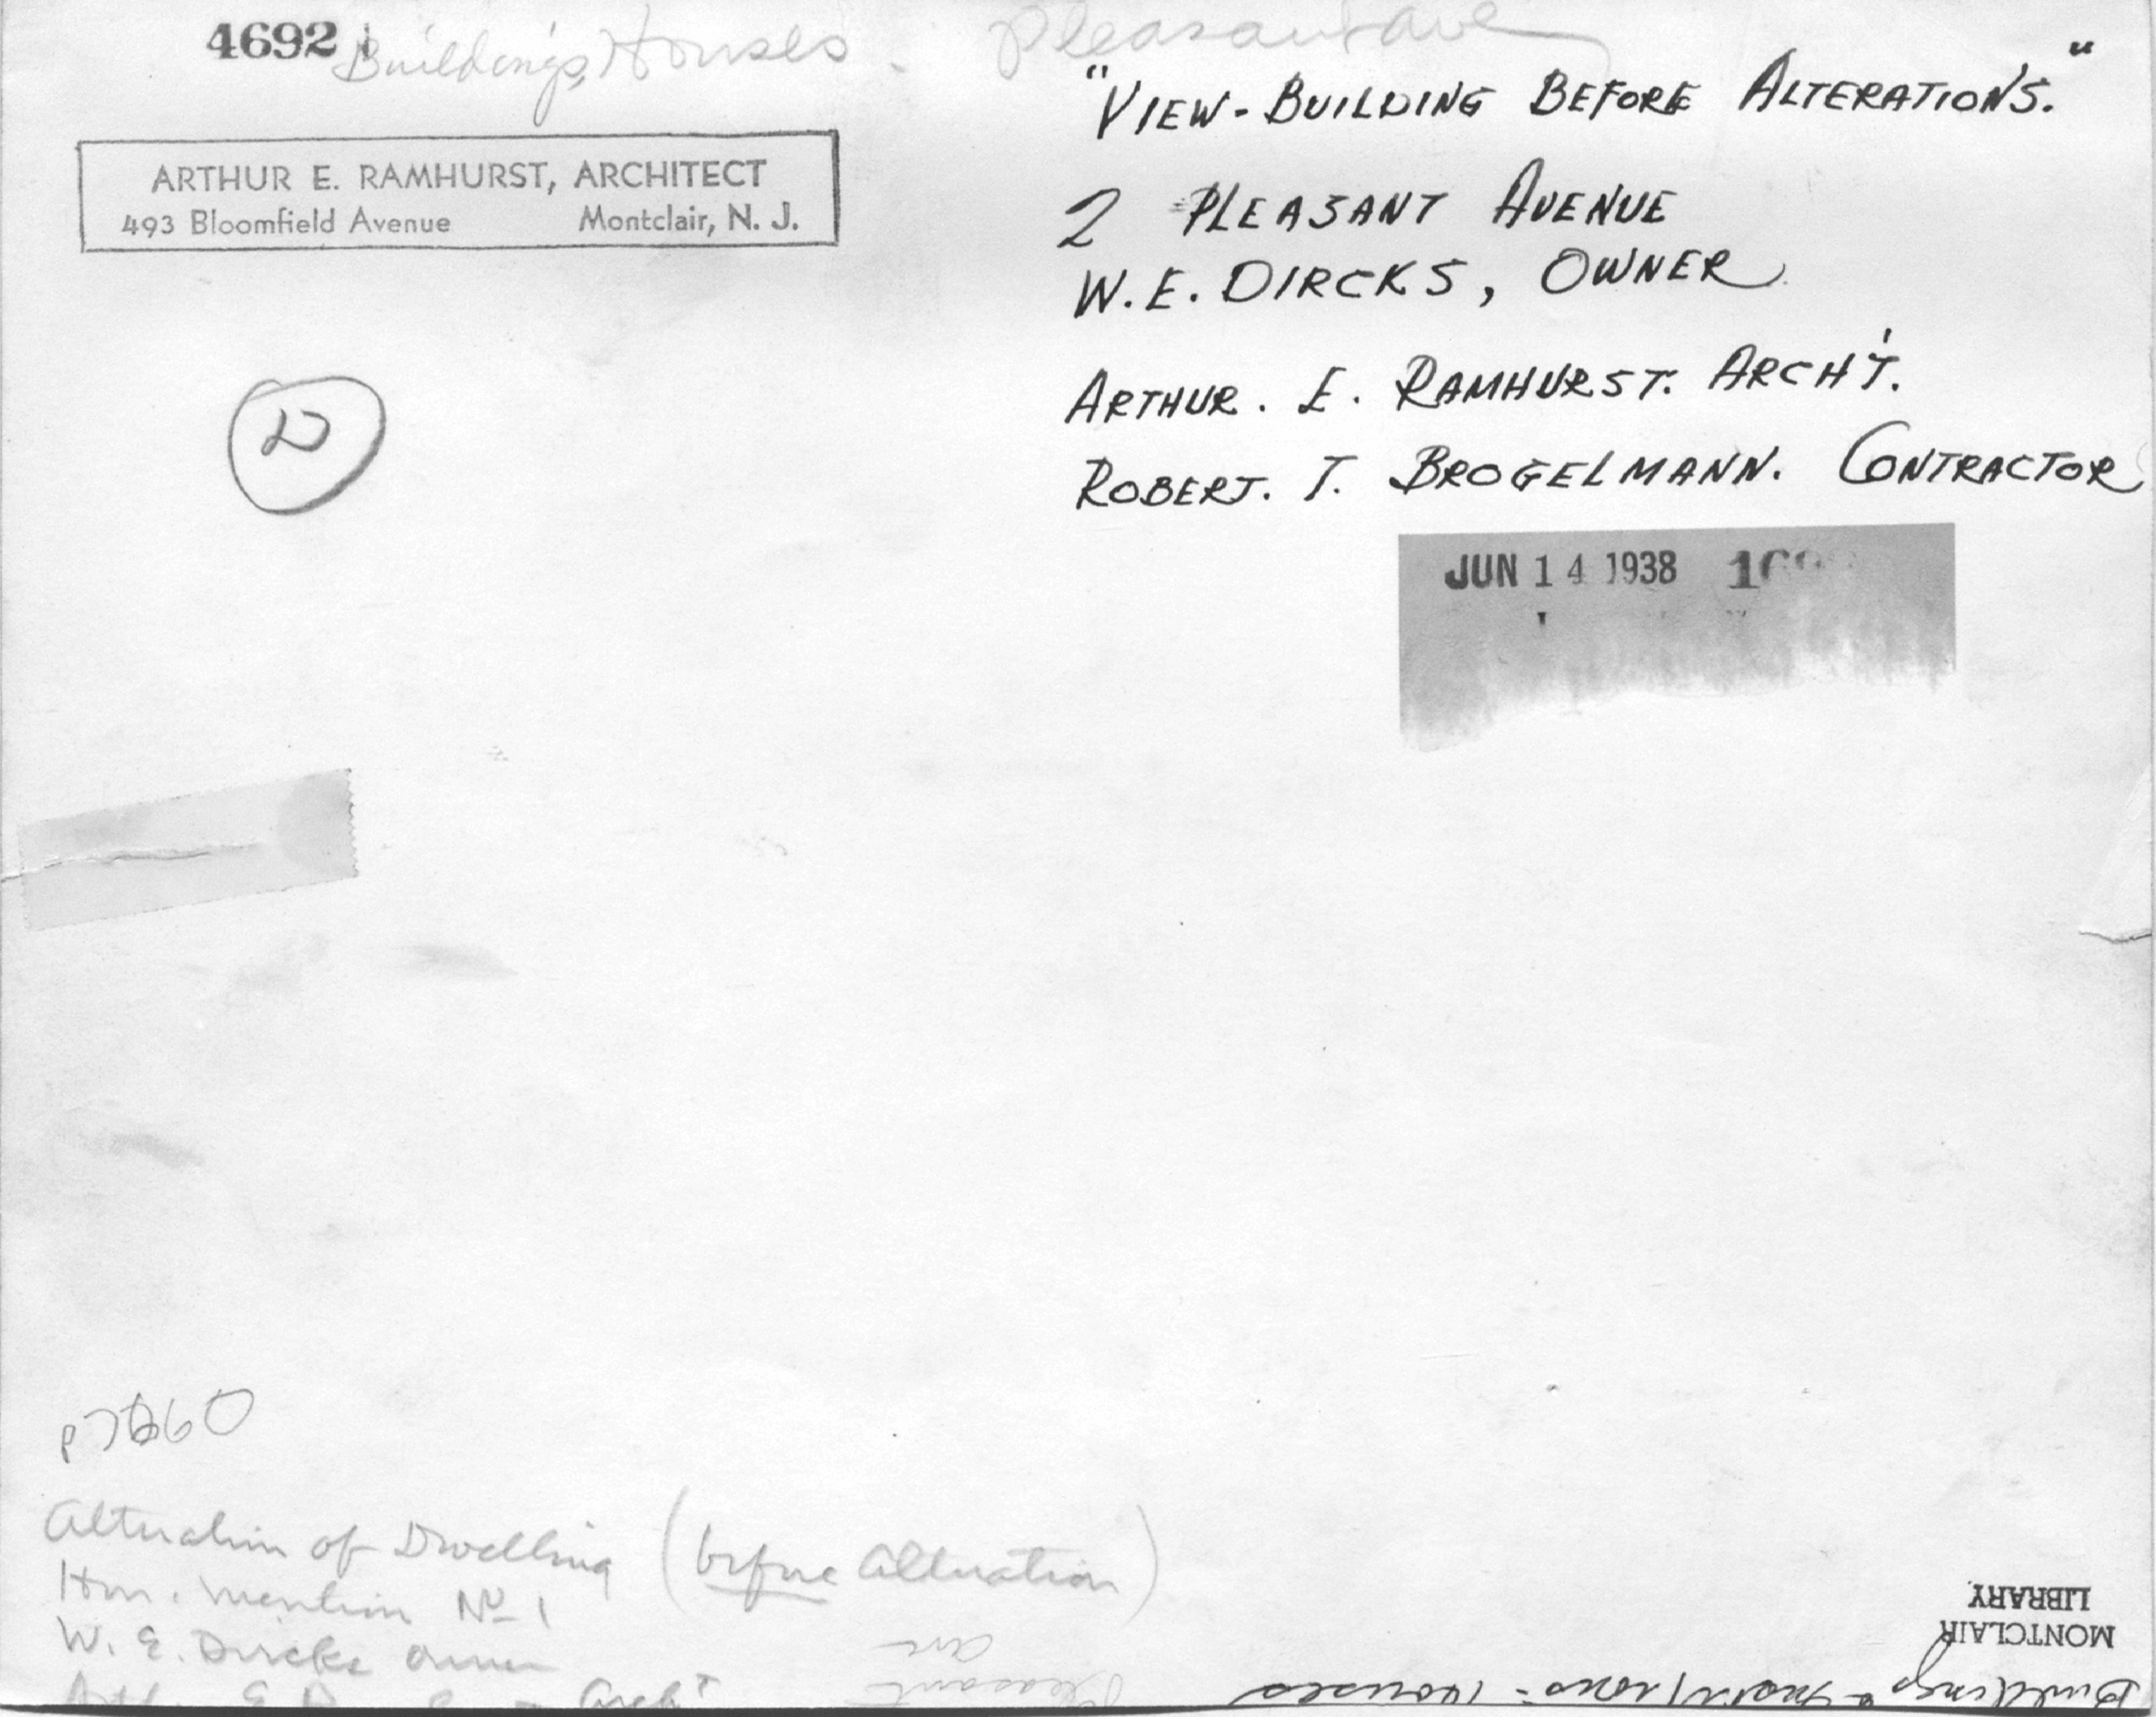 4692 Buildings, Houses. Pleasant Ave
"VIEW-BUILDING BEFORE ALTERATIONS."
ARTHUR E. RAMHURST, ARCHITECT
493 Bloomfield Avenue Montclair, N. J.
2 PLEASANT AVENUE
W.E. DIRCKS, OWNER
ARTHUR. E. RAMHURST. ARCH'T.
ROBERT. T. BROGELMANN. CONTRACTOR
JUN 14 1938
Alteration of Dwelling (before alteration)
Hon. Mention No 1
W. E. Dircks owner
Arch't
Pleasant
ave
MONTCLAIR
LIBRARY
Buildings Houses